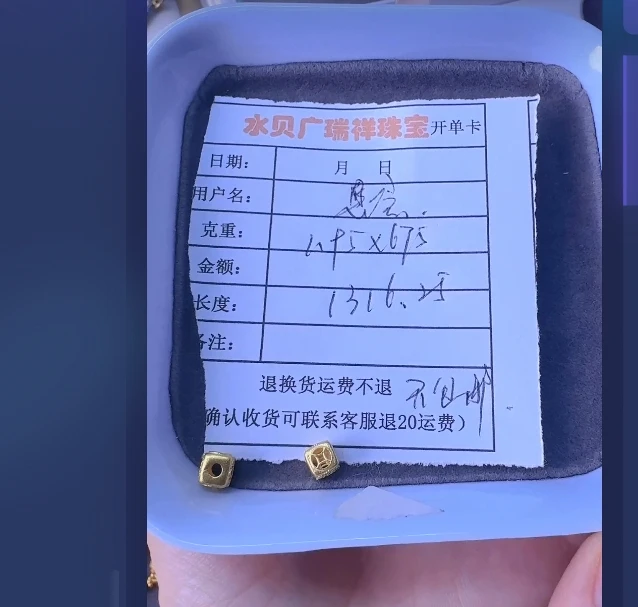 水贝广瑞祥珠宝开单卡
日期： 月 日
用户名：
克重： 1.95×675
金额： 1316.25
长度：
备注：
退换货运费不退
确认收货可联系客服退20运费）